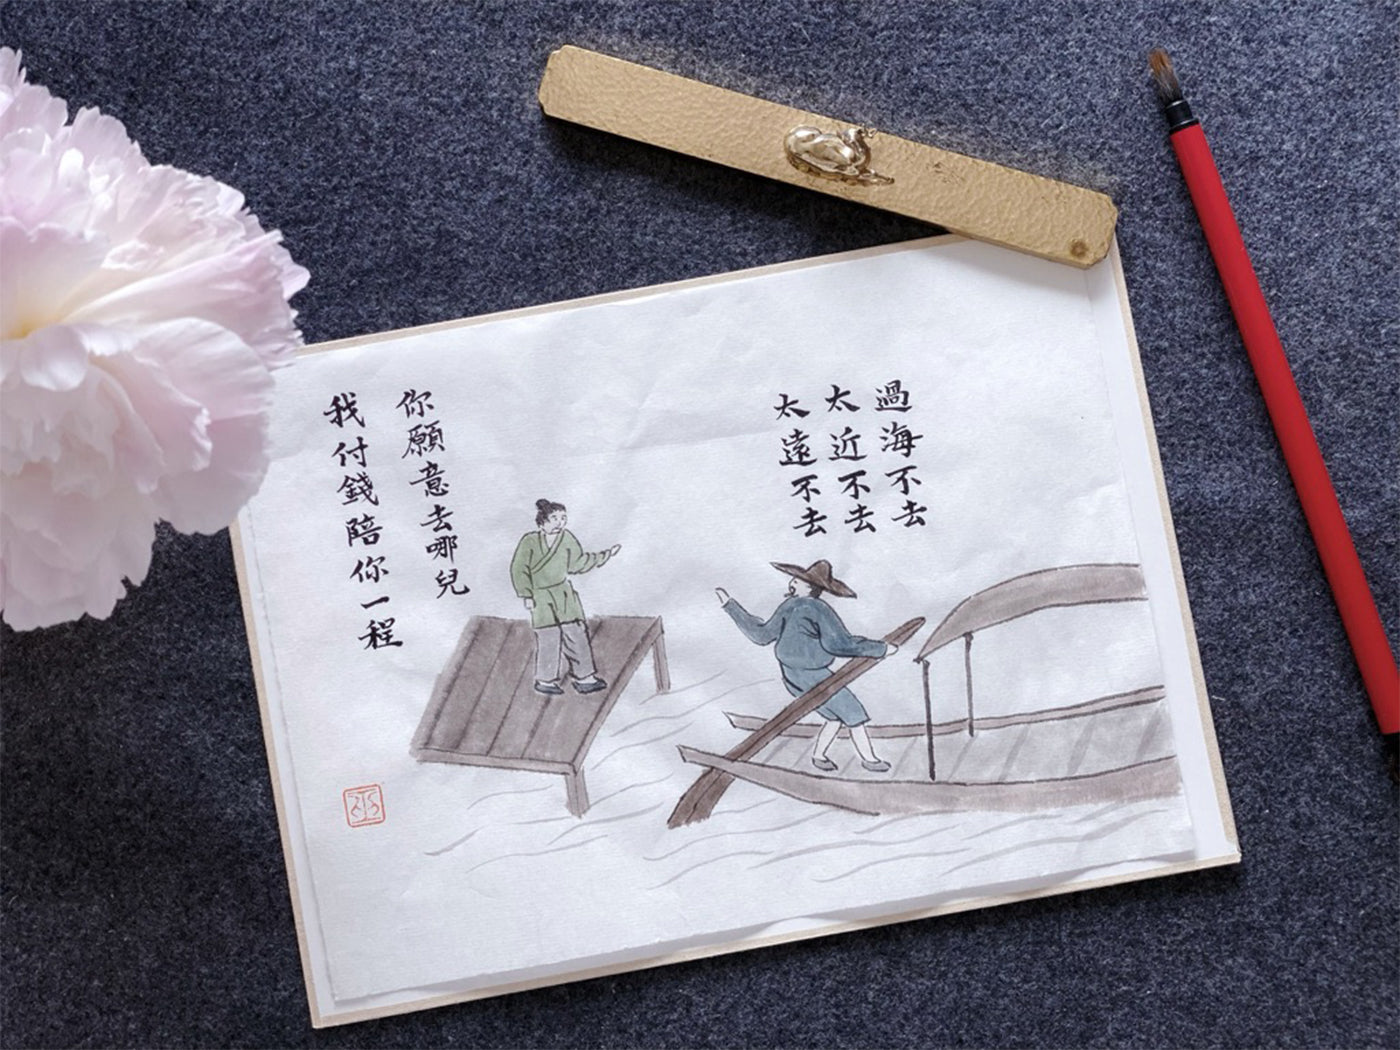 過海不去
太近不去
太遠不去
你願意去哪兒
我付錢陪你一程